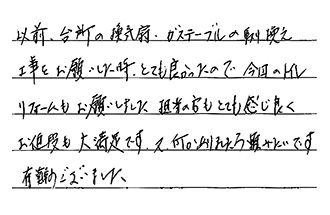 以前、台所の換気扇・ガステーブルの取り換え
工事をお願いした時、とても良かったので今回のトイレ
リフォームもお願いしました 担当の方もとても感じ良く
お値段も大満足です。又、何か有りましたら頼みたいです
有難うございました。